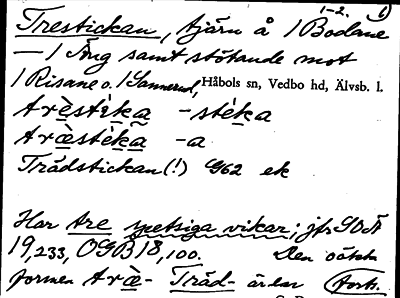 1-2. 6)
Trestickan, tjärn å 1 Bodane
— 1 Äng samt stötande mot
1 Risane o. 1 Sannerud, Håbols sn, Vedbo hd, Älvsb. l.
trèstika -stéka
træ̀stéka -a
Trädstickan (!) G62 ek
Har tre spetsiga vikar; jfr SOÄ
19,233, OGB 18,100. Den
formen træ- Träd- är